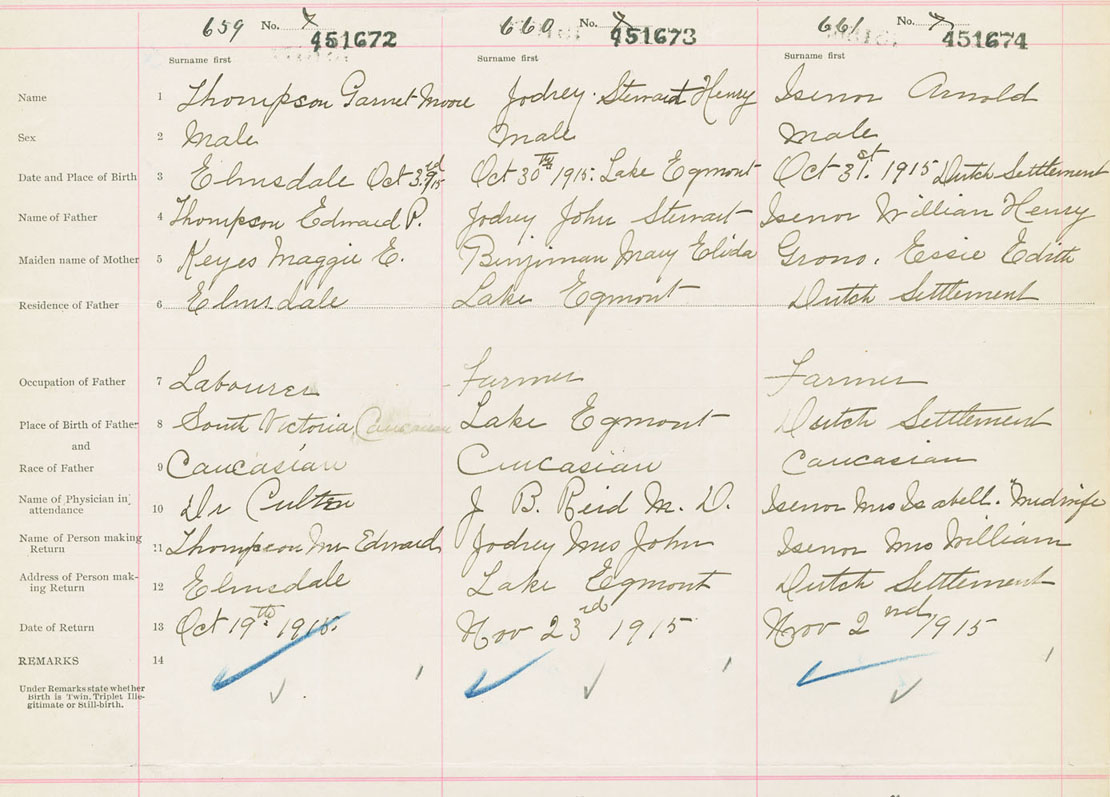 659 No. 7 660 No. 7 661 No. 7
451672 451673 451674
Surname first Surname first Surname first
Name 1 Thompson Garnet Moore Jodrey Stewart Henry Isenor Arnold
Sex 2 Male Male Male
Date and Place of Birth 3 Elmsdale Oct 3rd 1915 Oct 30th 1915. Lake Egmont Oct 31st. 1915 Dutch Settlement
Name of Father 4 Thompson Edward P. Jodrey John Stewart Isenor William Henry
Maiden name of Mother 5 Keyes Maggie E. Binjiman Mary Elida Grono, Essie Edith
Residence of Father 6 Elmsdale Lake Egmont Dutch Settlement
Occupation of Father 7 Labourer Farmer Farmer
Place of Birth of Father 8 South Victoria Caucasian Lake Egmont Dutch Settlement
and
Race of Father 9 Caucasian Caucasian Caucasian
Name of Physician in
attendance 10 Dr Culten J. B. Reid M. D. Isenor Mrs Isabell. Midwife
Name of Person making
Return 11 Thompson Mr Edward Jodrey Mrs John Isenor Mrs William
Address of Person mak-
ing Return 12 Elmsdale Lake Egmont Dutch Settlement
Date of Return 13 Oct 19th. 1915. Nov 23rd 1915 Nov 2nd, 1915
REMARKS 14
Under Remarks state whether
Birth is Twin, Triplet Ille-
gitimate or Still-birth.